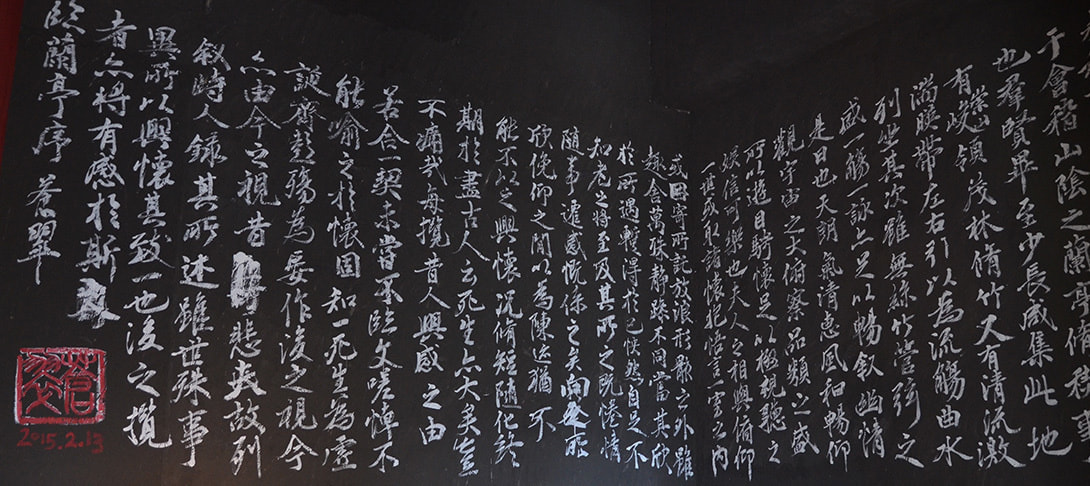 于會稽山陰之蘭亭脩稧事
也羣賢畢至少長咸集此地
有崇
峻領茂林脩竹又有清流激
湍暎帶左右引以為流觴曲水
列坐其次雖無絲竹管弦之
盛一觴一詠亦足以暢敘幽情
是日也天朗氣清惠風和暢仰
觀宇宙之大俯察品類之盛
所以遊目騁懷足以極視聽之
娛信可樂也夫人之相與俯仰
一世或取諸懷抱悟言一室之內
或因寄所託放浪形骸之外雖
趣舍萬殊靜躁不同當其欣
於所遇暫得於己怏然自足不
知老之將至及其所之既惓情
隨事遷感慨係之矣向之所
欣俛仰之閒以為陳迹猶不
能不以之興懷況脩短隨化終
期於盡古人云死生亦大矣豈
不痛哉每攬昔人興感之由
若合一契未嘗不臨文嗟悼不
能喻之於懷固知一死生為虛
誕齊彭殤為妄作後之視今
亦由今之視昔悲夫故列
敘時人錄其所述雖世殊事
異所以興懷其致一也後之攬
者亦將有感於斯文
臨蘭亭序 蒼翠
蒼翠
2015.2.13